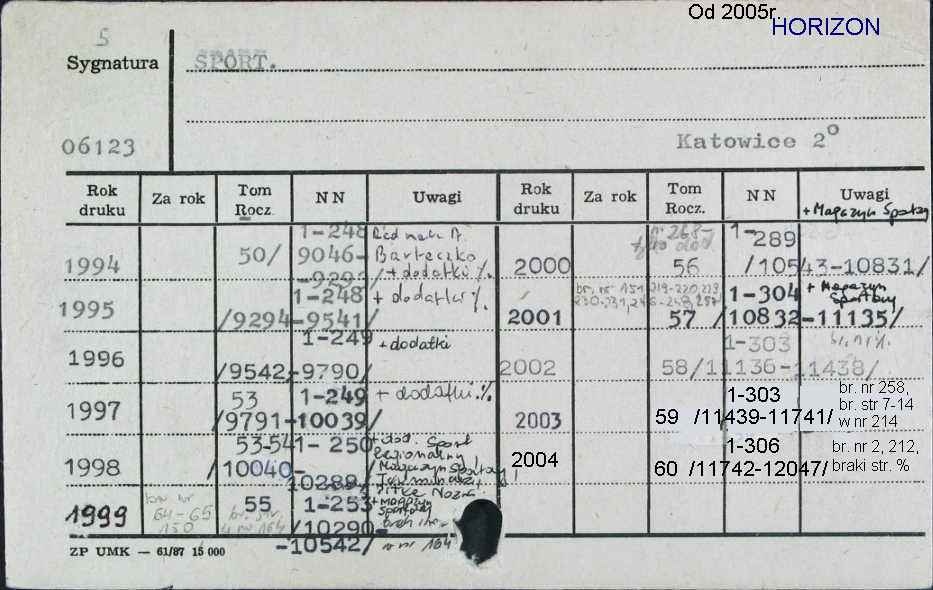 Od 2005r.
HORIZON
S
Sygnatura SPORT.
06123 Katowice 2°
Rok druku Za rok Tom Rocz. NN Uwagi Rok druku Za rok Tom Rocz. NN Uwagi
+ Magazyn Sportowy
1994 50/ 1-248 9046-9293 Red. nacz. A. Barteczko /+dodatki %
1995 1-248 /9294-9541/ + dodatki %
1996 1-249 /9542-9790/ +dodatki
1997 53 1-249 /9791-10039/ + dodatki %
1998 53-54 1-250 /10040-10289/ Sport
1999 55 1-253 /10290-10542/ + Magazyn Sportowy w nr 164
64-65
2000 56 1-289 /10543-10831/
2001 57 1-304 /10832-11135/ + Magazyn Sportowy
br. nr 151, 219-220, 229
2002 58 1-303 /11136-11438/
2003 59 1-303 /11439-11741/ br. nr 258, br. str 7-14 w nr 214
2004 60 1-306 /11742-12047/ br. nr 2, 212, braki str. %
ZP UMK — 61/87 15 000